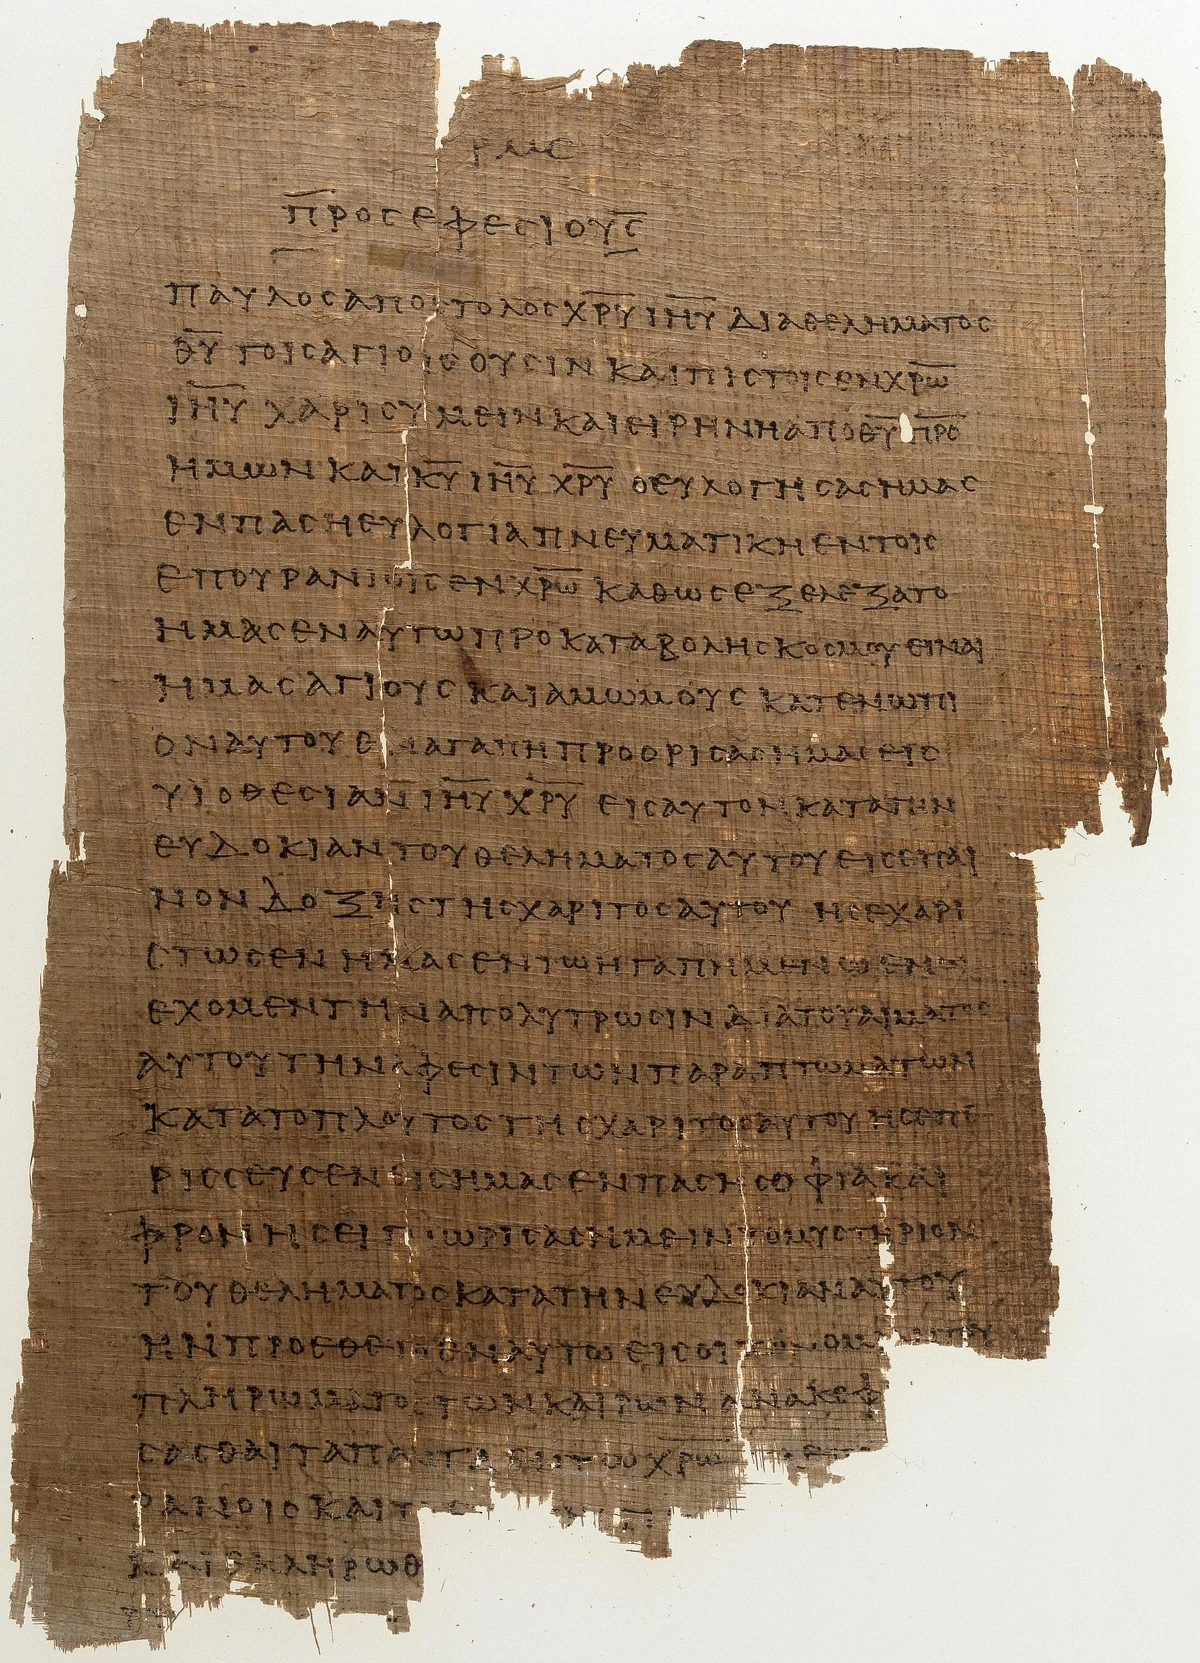 ρμϛ
π̅ροσεφεσιουσ̅
παυλοσαποστολοσχ̅ρ̅υ̅ ι̅η̅υ̅ διαθεληματοσ
θ̅υ̅ τοισαγιοισουσιν καιπιστοισενχ̅ρ̅ω̅
ι̅η̅υ̅ χαρισυμεινκαιειρηνηαποθ̅υ̅ π̅ρ̅σ̅
ημωνκαικ̅υ̅ ι̅η̅υ̅ χ̅ρ̅υ̅ οευλογησασημασ
ενπασηευλογιαπνευματικηεντοισ
επουρανιοισενχ̅ρ̅ω̅ καθωσεξελεξατο
ημασεναυτωπροκαταβοληςκοσμουειναι
ημασαγιουσκαιαμωμουσκατενωπι
οναυτουεναγαπηπροορισασημασεισ
υιοθεσιανι̅η̅υ̅ χ̅ρ̅υ̅ εισαυτονκατατην
ευδοκιαντουθεληματοσαυτουεισεπαι
νονδοξηστησχαριτοσαυτου ησεχαρι
τωσενημασεντωηγαπημενωεν
εχομεντηναπολυτρωσινδιατουαιματοσ
αυτουτηναφεσιντωνπαραπτωματων
κατατοπλουτοστησχαριτοσαυτουησεπε
ρισσευσενεισημασενπασησοφιακαι
φρονησει γνωρισασημειντομυστηριον
τουθεληματοσκατατηνευδοκιαναυτου
ηνπροεθετοεναυτωεισοι
πληρωματοστωνκαιρωνανακεφ
σασθαιταπανταεντωχ̅ρ̅ω̅
ρανοισκαι
εκληρωθ